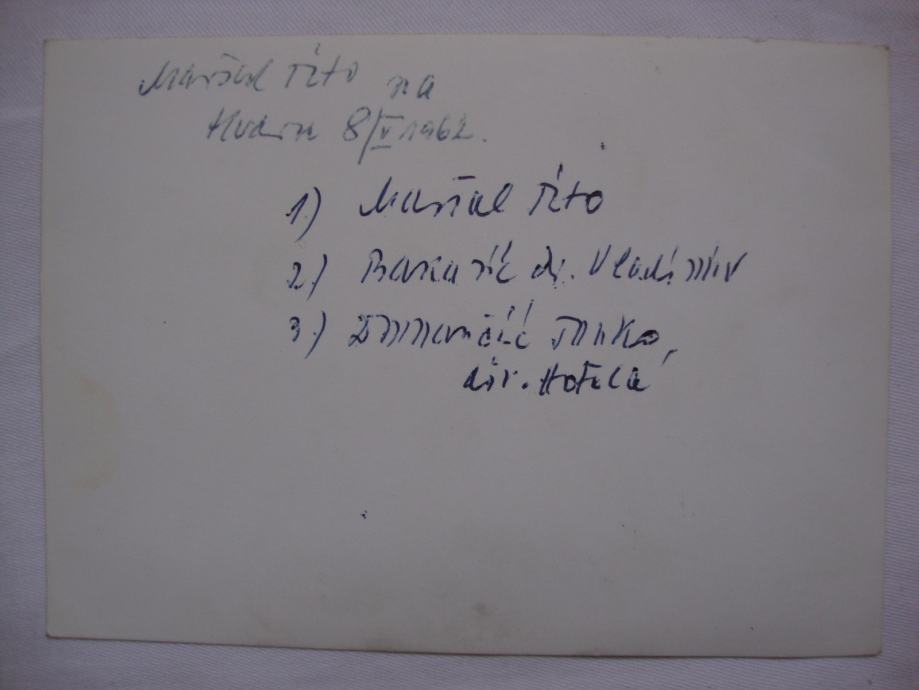 Maršal Tito na
Hvaru 8/V 1962.
1) Maršal Tito
2) Bakarić dr. Vladimir
3)
dir. Hotela